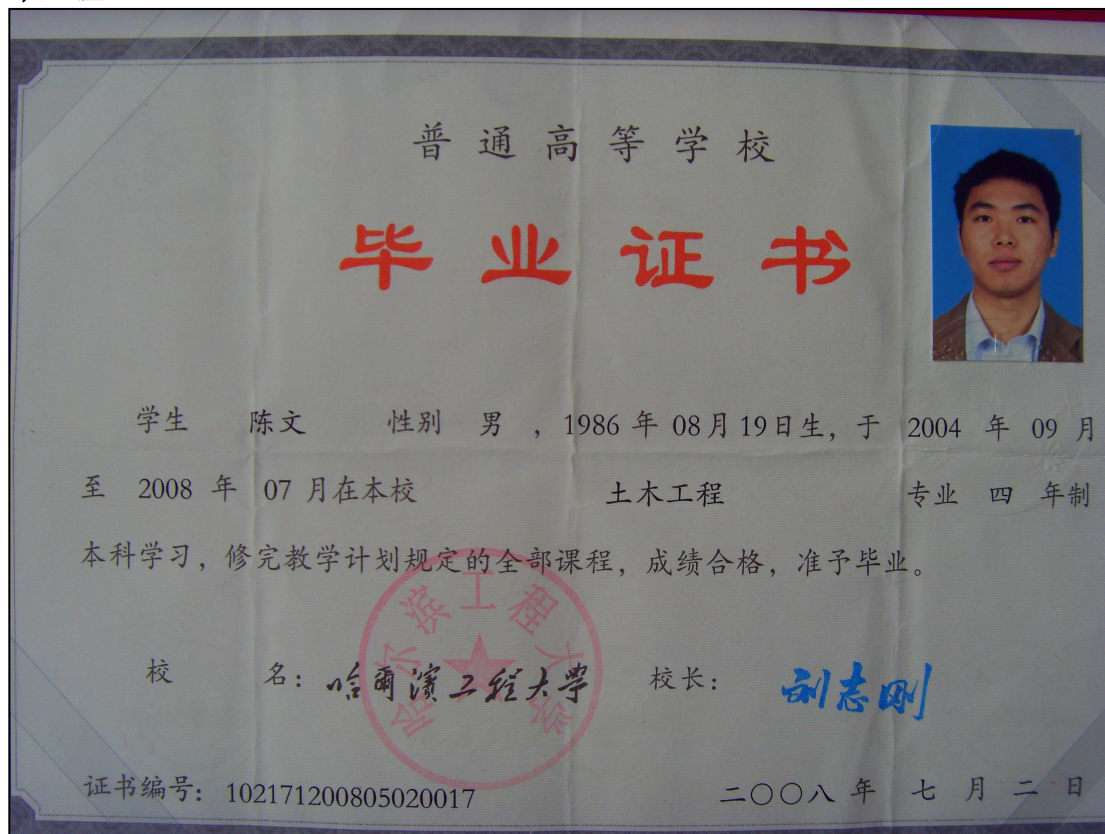 普通高等学校
毕业证书
学生 陈文 性别 男 ，1986 年 08月19日生，于 2004 年 09 月
至 2008 年 07 月在本校 土木工程 专业 四 年制
本科学习，修完教学计划规定的全部课程，成绩合格，准予毕业。
哈尔滨工程大学
校 名：哈爾濱工程大學 校长：刘志刚
证书编号：102171200805020017 二〇〇八 年 七 月 二 日